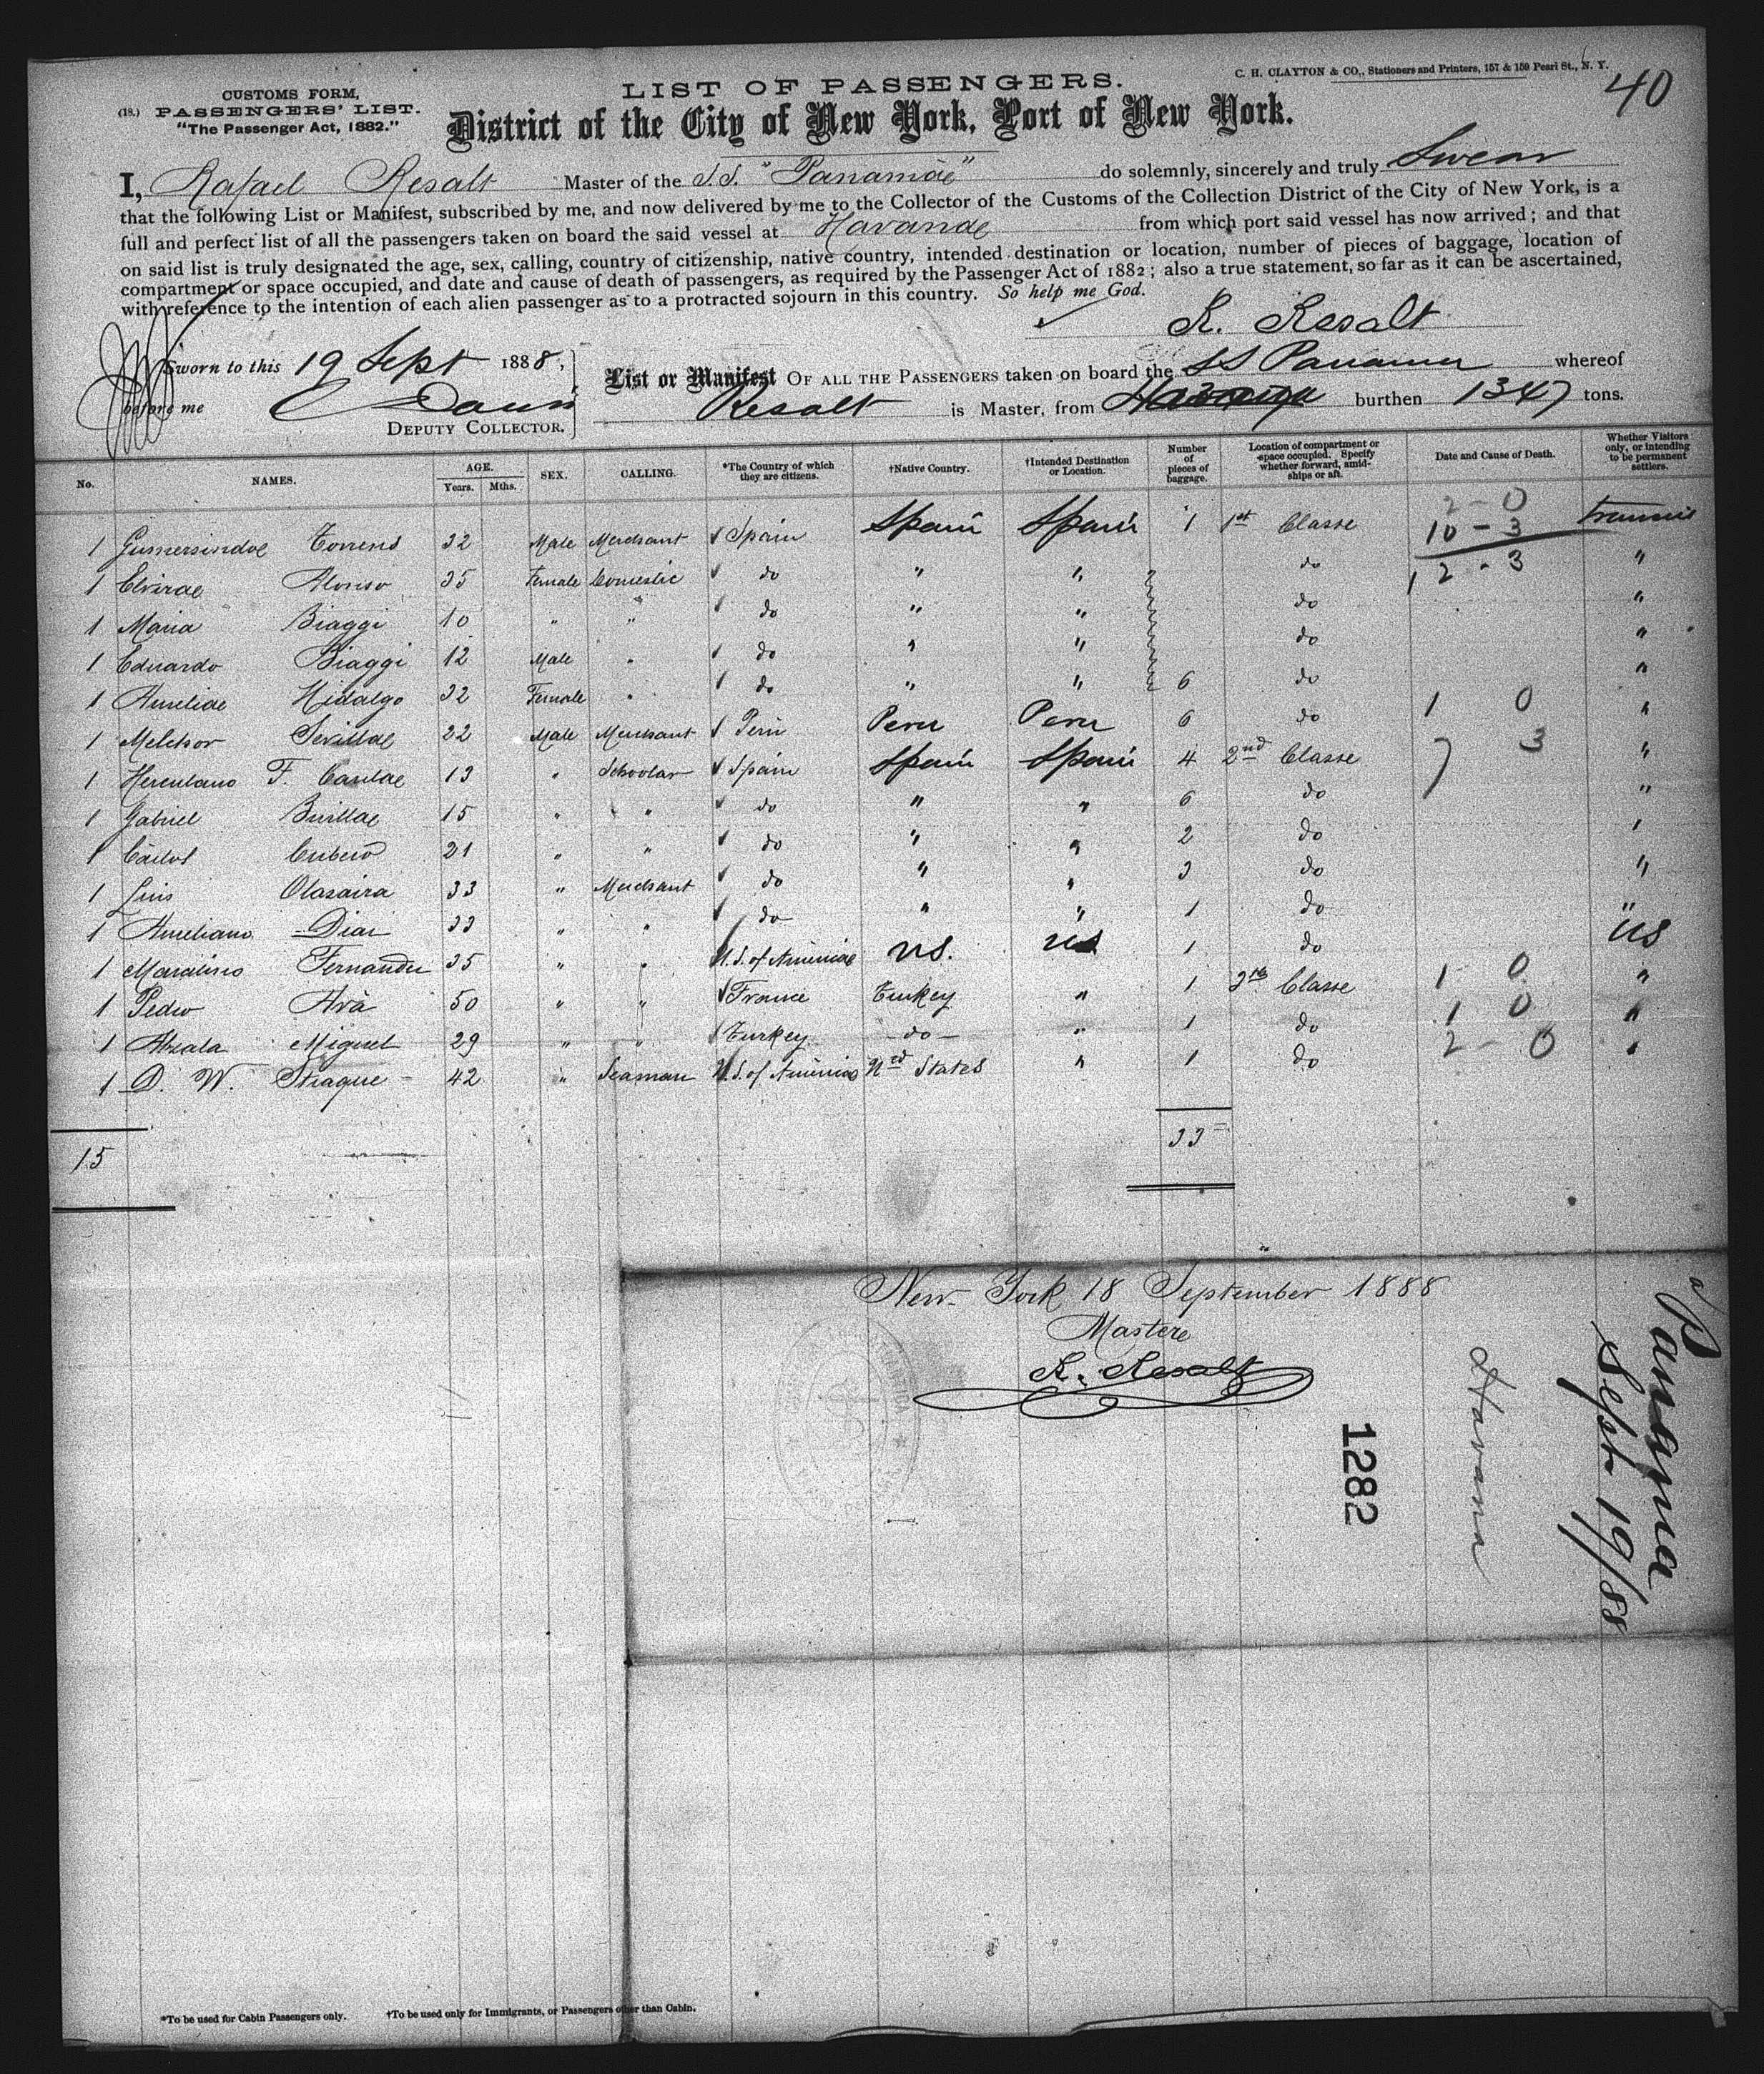 C. H. CLAYTON & CO., Stationers and Printers, 157 & 159 Pearl St., N. Y.
40
CUSTOMS FORM,
(18.) PASSENGERS' LIST.
"The Passenger Act, 1882."
LIST OF PASSENGERS.
District of the City of New York, Port of New York.
I, Rafael Resalt Master of the S.S. "Panamá" do solemnly, sincerely and truly Swear
that the following List or Manifest, subscribed by me, and now delivered by me to the Collector of the Customs of the Collection District of the City of New York, is a
full and perfect list of all the passengers taken on board the said vessel at Havana from which port said vessel has now arrived; and that
on said list is truly designated the age, sex, calling, country of citizenship, native country, intended destination or location, number of pieces of baggage, location of
compartment or space occupied, and date and cause of death of passengers, as required by the Passenger Act of 1882; also a true statement, so far as it can be ascertained,
with reference to the intention of each alien passenger as to a protracted sojourn in this country. So help me God.
R. Resalt
Sworn to this 19 Sept 1888,
before me
DEPUTY COLLECTOR.
List or Manifest OF ALL THE PASSENGERS taken on board the SS Panama whereof
Resalt is Master, from Havana burthen 1347 tons.
No. NAMES. AGE. Years. Mths. SEX. CALLING. *The Country of which they are citizens. †Native Country. †Intended Destination or Location. Number of pieces of baggage. Location of compartment or space occupied. Specify whether forward, amidships or aft. Date and Cause of Death. Whether Visitors only, or intending to be permanent settlers.
2 - 0
1 Gumersindo Torrens 32 Male Merchant Spain Spain Spain 1 1st Classe 10 - 3 transit
1 Elvira Alonso 35 Female Domestic do " " do 12 - 3 "
1 Maria Biaggi 10 " " do " " do "
1 Eduardo Biaggi 12 Male " do " " do "
1 Aurelia Hidalgo 32 Female " do " " 6 do "
1 Melchor Sevilla 22 Male Merchant Peru Peru Peru 6 do 1 0 "
1 Herculano F. 13 " Schoolar Spain Spain Spain 4 2nd Classe 7 3 "
1 Gabriel 15 " " do " " 6 do "
1 Carlos Cubero 21 " " do " " 2 do "
1 Luis 33 " Merchant do " " 3 do "
1 Aureliano Diaz 33 " " do " " 1 do "
1 Fernandez 35 " " U.S. of America US. US 1 do US
1 Pedro 50 " " France Turkey " 1 3rd Classe 1 0 "
1 Miguel 29 " " Turkey do " 1 do 1 0 "
1 D. W. 42 " Seaman U.S. of America Ud States " 1 do 2 - 0 "
15
33
New York 18 September 1888
Master
R. Resalt
1282
Havana
Panama
Sept 19/88
*To be used for Cabin Passengers only. †To be used only for Immigrants, or Passengers other than Cabin.